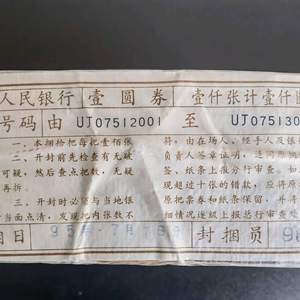 人民银行 壹圆券 壹仟张计壹仟
号码由 UJ07512001 至 UJ075130
一:本捆拾把每把壹佰张
二、开封前先检查有无破
可疑，然后查点把数，无疑
再拆。
三、开封时必须与当地银
当面点清，发现把内张数不
符，由在场人、经手人及银
负责人签章证明，连同原
签、纸条上报分行审查。如
现超过十张的错款，应将
原把票券和纸条保留，并将
细情况逐级上报总行审查
捆日 95年7月 封捆员